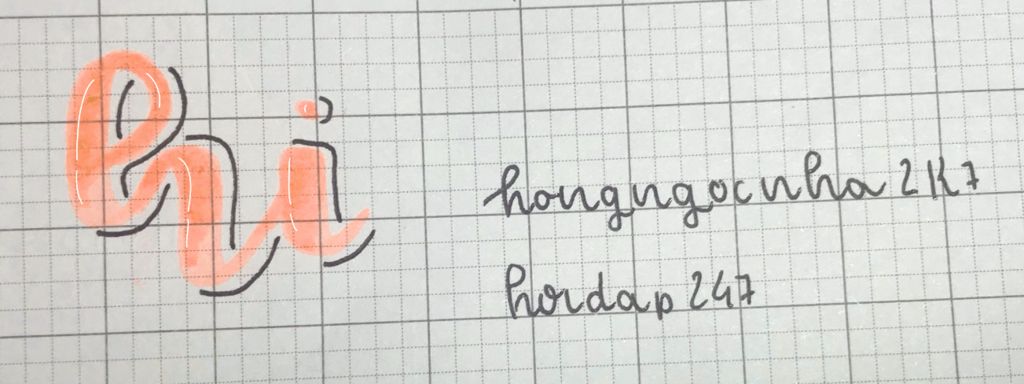 hi
hongngocnha2k7
hoidap247